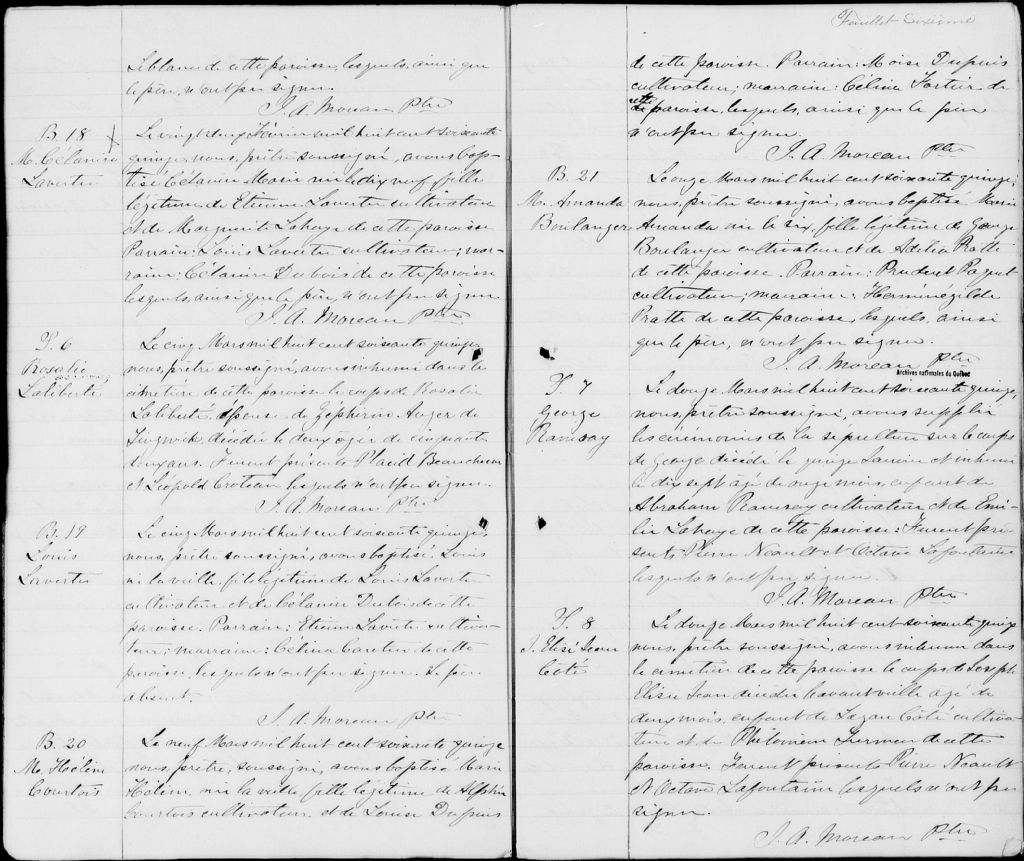 Leblanc de cette paroisse, lesquels, ainsi que
le père, n'ont pu signer.
J. A. Moreau Ptre
B. 18
M. Célanire
Lavertu
Le vingt deux Février mil huit cent soixante
quinze, nous, prêtre soussigné, avons bap-
tisé Célanire Marie née le dix neuf, fille
légitime de Etienne Lavertu cultivateur
et de Marguerite Lahaye de cette paroisse
Parrain: Louis Lavertu cultivateur; mar-
raine: Célanire Dubois de cette paroisse
lesquels, ainsi que le père, n'ont pu signer
J. A. Moreau Ptre
S. 6
Rosalie
Laliberté
Le cinq Mars mil huit cent soixante quinze,
nous, prêtre soussigné, avons inhumé dans le
cimetière de cette paroisse le corps de Rosalie
Laliberté, épouse de Zephirin Auger de
Lingwick, décédée le deux âgée de cinquante
deux ans. Furent présents Placid Beauchesne
et Léopold Croteau lesquels n'ont pu signer.
J. A. Moreau Ptre
B. 19
Louis
Lavertu
Le cinq Mars mil huit cent soixante quinze,
nous, prêtre soussigné, avons baptisé Louis
né la veille, fils légitime de Louis Lavertu
cultivateur et de Célanire Dubois de cette
paroisse. Parrain: Etienne Lavertu cultiva-
teur; marraine: Célina Cantin de cette
paroisse, lesquels n'ont pu signer. Le père
absent.
J. A. Moreau Ptre
B. 20
M. Hélène
Courtois
Le neuf Mars mil huit cent soixante quinze
nous, prêtre, soussigné, avons baptisé Marie
Hélène née la veille, fille légitime de Alphée
Courtois cultivateur et de Louise Dupuis
Feuillet Sixième
de cette paroisse. Parrain: Moïse Dupuis
cultivateur; marraine: Célina Fortier de
cette paroisse, lesquels, ainsi que le père
n'ont pu signer.
J. A. Moreau Ptre
B. 21
M. Amanda
Boulanger
Le onze Mars mil huit cent soixante quinze,
nous, prêtre soussigné, avons baptisé Marie
Amanda née le six, fille légitime de George
Boulanger cultivateur et de Adélia Pratte
de cette paroisse. Parrain: Prudent Paquet
cultivateur; marraine: Herménégilde
Pratte de cette paroisse, lesquels, ainsi
que le père, n'ont pu signer.
J. A. Moreau Ptre
Archives nationales du Québec
S. 7
George
Ramsay
Le douze Mars mil huit cent soixante quinze,
nous, prêtre soussigné, avons supplée
les cérémonies de la sépulture sur le corps
de George décédé le quinze Janvier et inhumé
le dix sept âgé de onze mois, enfant de
Abraham Ramsay cultivateur et de Emé-
lie Lahaye de cette paroisse. Furent pré-
sents Pierre Neault et Octave Lafontaine
lesquels n'ont pu signer.
J. A. Moreau Ptre
S. 8
J. Elisé Jean
Côté
Le douze Mars mil huit cent soixante quinze
nous, prêtre soussigné, avons inhumé dans
le cimetière de cette paroisse le corps de Joseph
Elisée Jean décédé l'avant veille âgé de
deux mois, enfant de Lazare Côté cultiva-
teur et de Philomène de cette
paroisse. Furent présents Pierre Neault
et Octave Lafontaine lesquels n'ont pu
signer.
J. A. Moreau Ptre